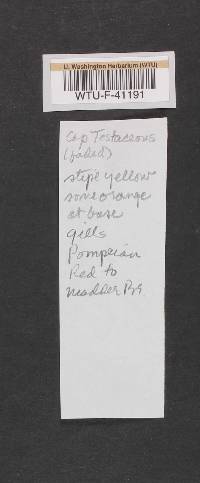 U. Washington Herbarium (WTU)
WTU-F-41191
Cap Testaceous
(faded)
stipe yellow
some orange
at base
gills
Pompeian
Red to
madder Br